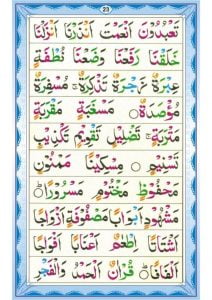 23
تَعْبُدُوْنَ اَنْعَمْتَ اَنْذَرْنَا اَنْزَلْنَا
خَلَقْنَا رَفَعْنَا وَضَعْنَا نُطْفَةٍ
عِبْرَةٌ زَجْرَةٌ تَذْكِرَةٌ مُسْفِرَةٌ
مُؤْصَدَةٌ مَسْغَبَةٍ مَقْرَبَةٍ
مَتْرَبَةٍ تَضْلِيْلٍ تَقْوِيْمٍ تَكْذِيْبٍ
تَسْنِيْمٍ مِسْكِيْنًا مَمْنُوْنٍ
مَحْفُوْظٍ مَخْتُوْمٍ مَسْرُوْرًا
مَشْهُوْدٍ اَبْوَابًا مَصْفُوْفَةٌ اَزْوَاجًا
اَشْتَاتًا اِطْعَامٌ اَعْنَابًا اَفْوَاجًا
اَلْفَافًا قُرْاٰنٌ اَلْحَمْدُ وَالْفَجْرِ